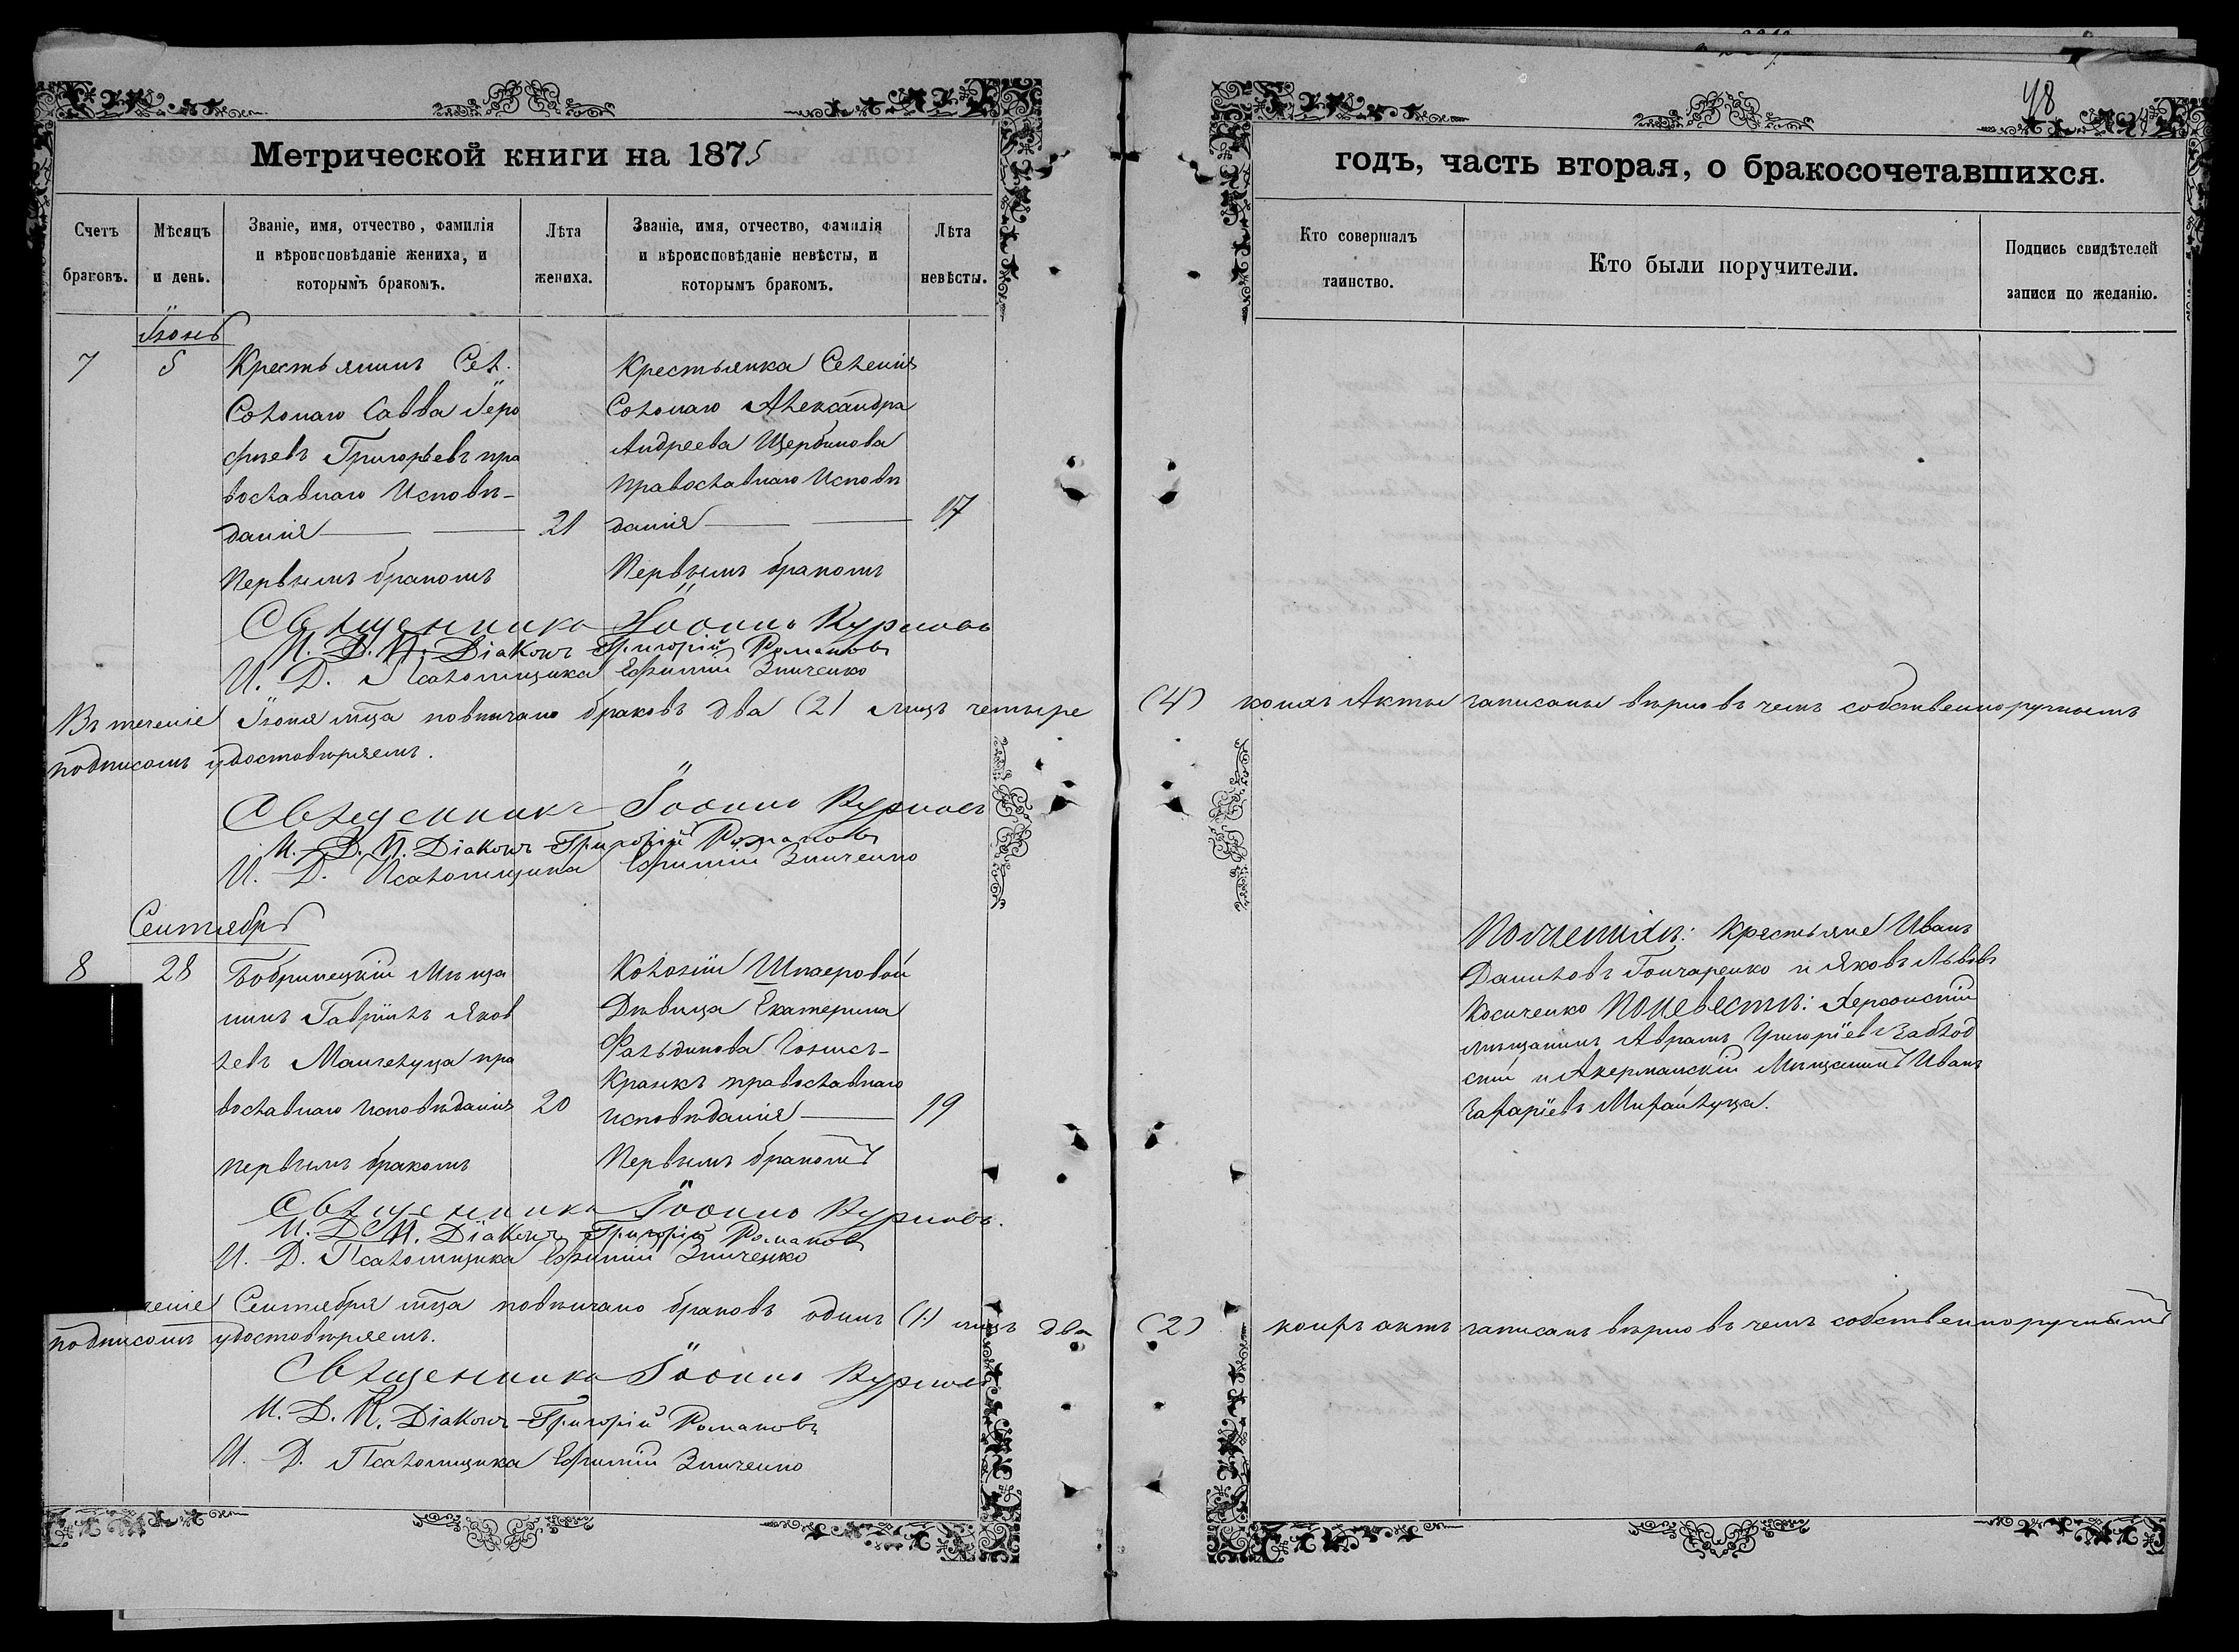 Метрической книги на 1875
Счетъ браковъ.
Мѣсяцъ и день.
Званіе, имя, отчество, фамилія и вѣроисповѣданіе жениха, и которымъ бракомъ.
Лѣта жениха.
Званіе, имя, отчество, фамилія и вѣроисповѣданіе невѣсты, и которымъ бракомъ.
Лѣта невѣсты.
Іюнь
7
5
Крестьянинъ Сел.
Солонаго Савва Іеро
фѣевъ Григорьевъ пра
вославнаго Исповѣ-
данія
21
Первымъ бракомъ
Крестьянка Селенія
Солонаго Александра
Андреева Щербинова
православнаго Исповѣ
данія
17
Первымъ бракомъ
Священникъ Іоаннъ
И. Д. П. Діаконъ Григорій Романовъ
И. Д. Псаломщика Ефимій Зинченко
Въ теченіе Іюня мѣца повѣнчано браковъ два (2) лицъ четыре
подписомъ удостовѣряемъ.
Священникъ Іоаннъ
И. Д. П. Діаконъ Григорій Романовъ
И. Д. Псаломщика Ефимій Зинченко
Сентябрь
8
28
Бобринецкій Мѣща
нинъ Гавріилъ Яков
левъ Мангелуца пра
вославнаго исповѣданія
20
первымъ бракомъ
Колоніи Шпаеровой
Дѣвица Екатерина
Фальдинова
Кранкъ православнаго
исповѣданія
19
Первымъ бракомъ
Священникъ Іоаннъ
И. Д. П. Діаконъ Григорій Романовъ
И. Д. Псаломщика Ефимій Зинченко
ченіе Сентября мѣца повѣнчано браковъ одинъ (1) лицъ два
подписомъ удостовѣряемъ.
Священникъ Іоаннъ
И. Д. П. Діаконъ Григорій Романовъ
И. Д. Псаломщика Ефимій Зинченко
48
годъ, часть вторая, о бракосочетавшихся.
Кто совершалъ таинство.
Кто были поручители.
Подпись свидѣтелей записи по желанію.
(4) коихъ Акты записаны вѣрно въ чемъ собственноручнымъ
По женихѣ: Крестьяне Иванъ
Даниловъ Гончаренко и Яковъ Львовъ
Косиченко По невестѣ: Херсонскій
мѣщанинъ Аврамъ Григоріевъ Заблод
скій и Акерманскій Мѣщанинъ Иванъ
Захаріевъ
(2) коихъ актъ записанъ вѣрно въ чемъ собственноручнымъ